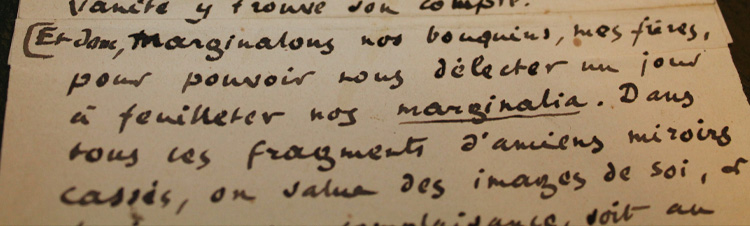 vanité y trouve son compte.
(Et donc, marginalons nos bouquins, mes frères,
pour pouvoir nous délecter un jour
à feuilleter nos marginalia. Dans
tous ces fragments d'anciens miroirs
cassés, on salue des images de soi, &
complaisance, soit au